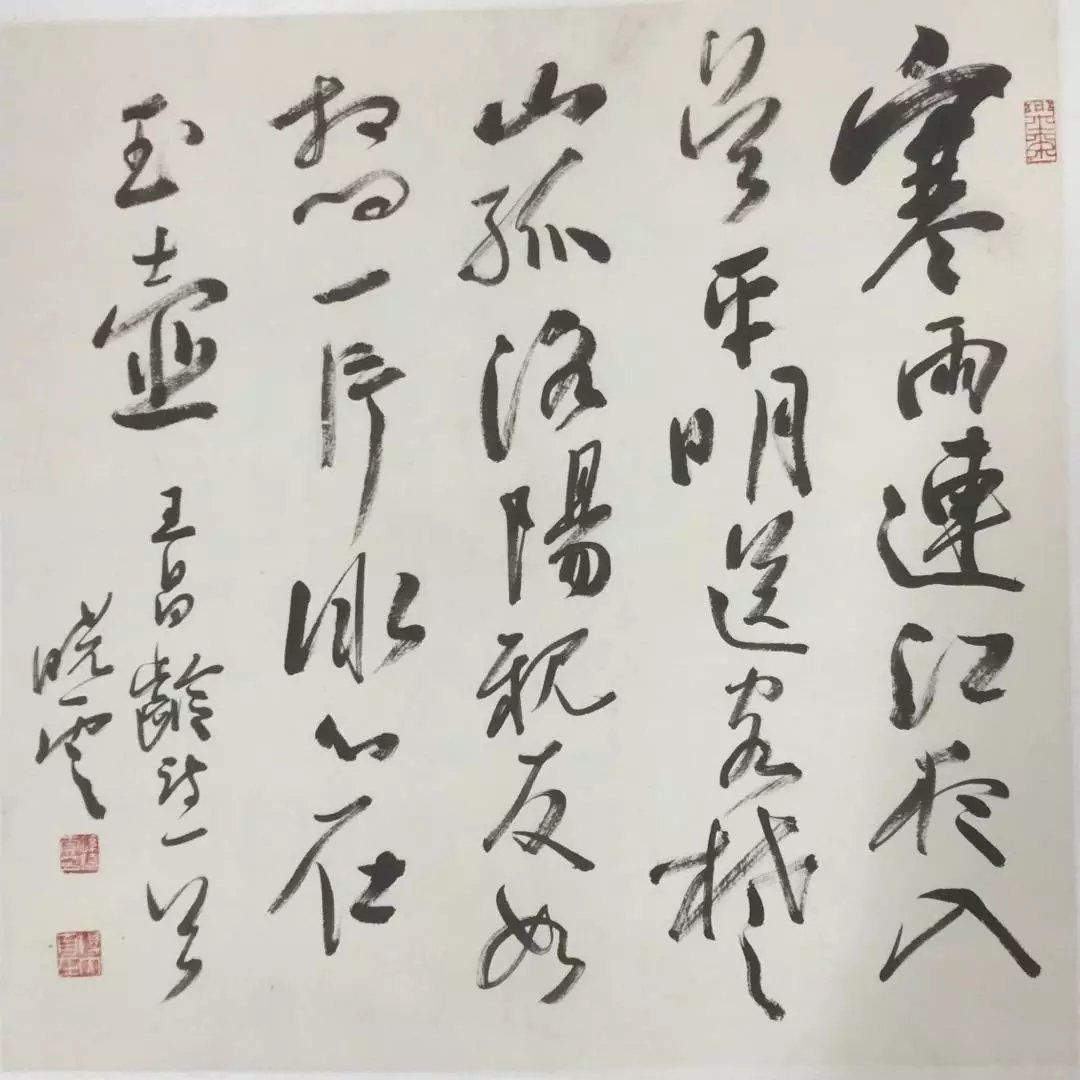 寒雨連江夜入
吳平明送客楚
山孤洛陽親友如
相問一片冰心在
玉壺
王昌齡詩一首
晓雲